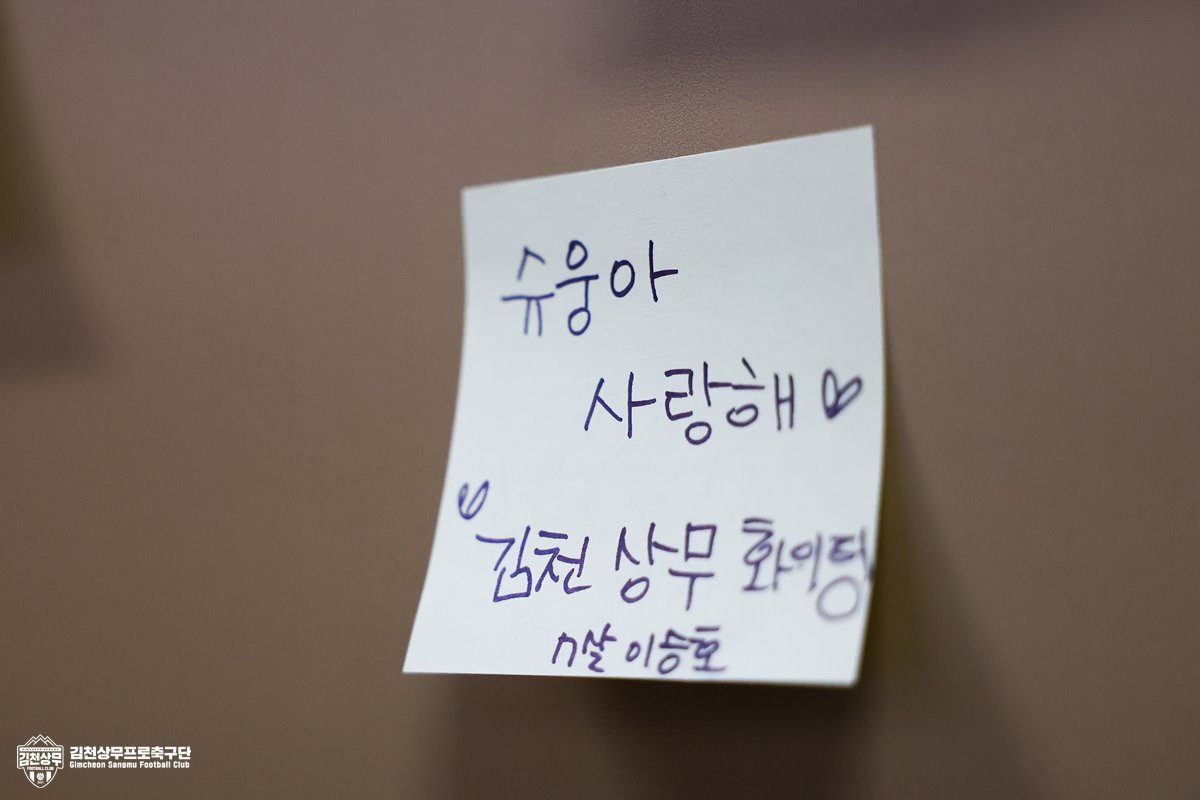 슈웅아
사랑해♡
♡김천 상무 화이팅
7살 이승호
김천상무프로축구단
Gimcheon Sangmu Football Club
김천상무
FOOTBALL CLUB